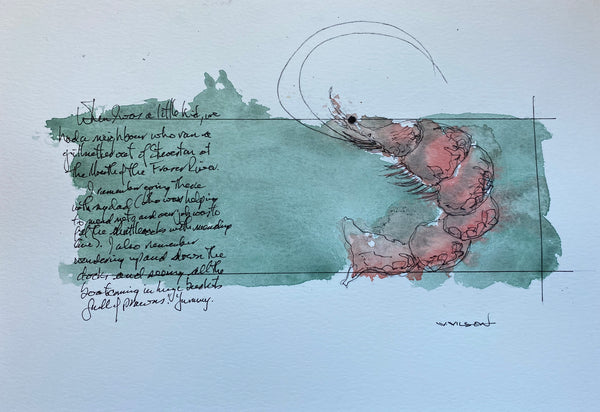 When I was a little kid, we
had a neighbour who ran a
gillnetter out of Steveston at
the Mouth of the Fraser River.
I remember going there
with my dad (who was helping
to mend nets and our job was to
fill the shuttlecocks with mending
line). I also remember
wandering up and down the
docks and seeing all the
boats coming in huge baskets
full of prawns. Yummy.
W.WILSON